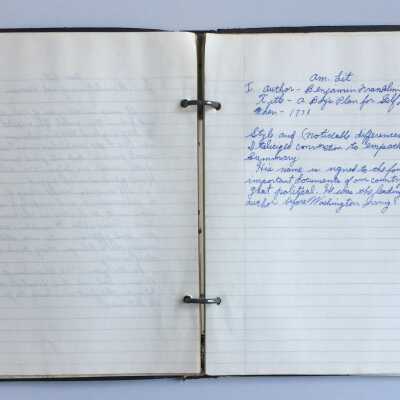 Am. Lit
I. Author - Benjamin Franklin
Title - A Boy's Plan for Self
When - 1771
Style and (noticable differences
Summary
His name is signed to the four
important documents of our country
that political. He was the leading
author before Washington Irving